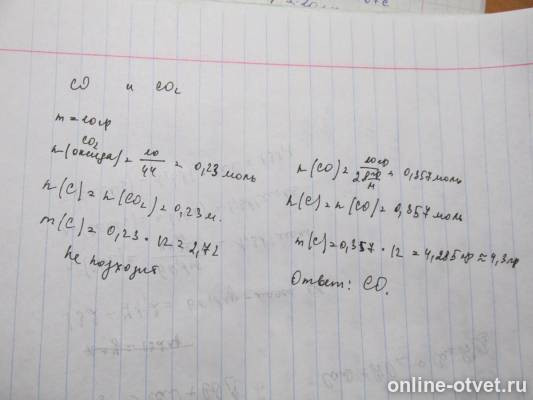 CO и CO₂
m = 10гр
n(оксида) CO₂ = 10/44 = 0,23 моль
n(C) = n(CO₂) = 0,23 м.
m(C) = 0,23 · 12 = 2,72
Не подходит
n(CO) = 10гр/28гр/м = 0,357 моль
n(C) = n(CO) = 0,357 моль
m(C) = 0,357 · 12 = 4,285гр ≈ 4,3гр
Ответ: CO.
online-otvet.ru